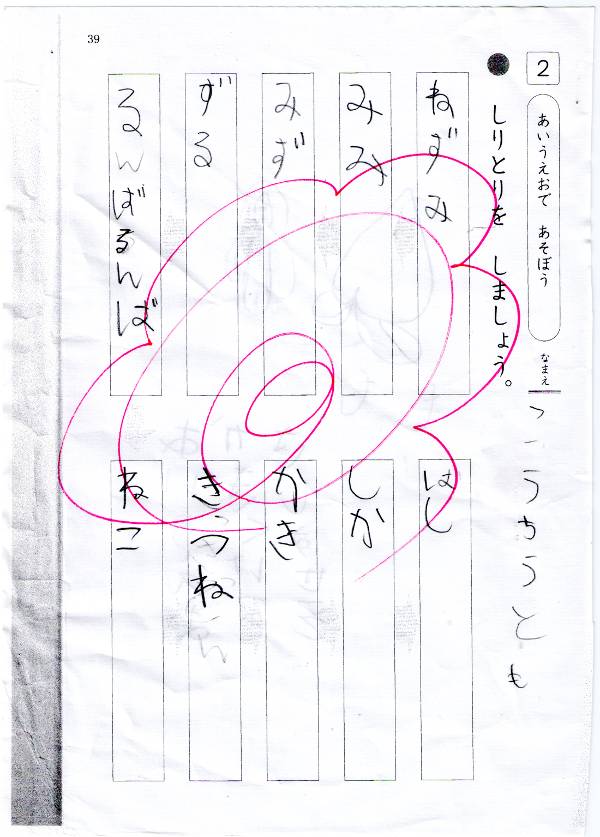 39
2
あいうえおで あそぼう
なまえ
しりとりを しましょう。
ねずみ
みみ
みず
ずる
るんばるんば
はし
しか
かき
きつね
ねこ